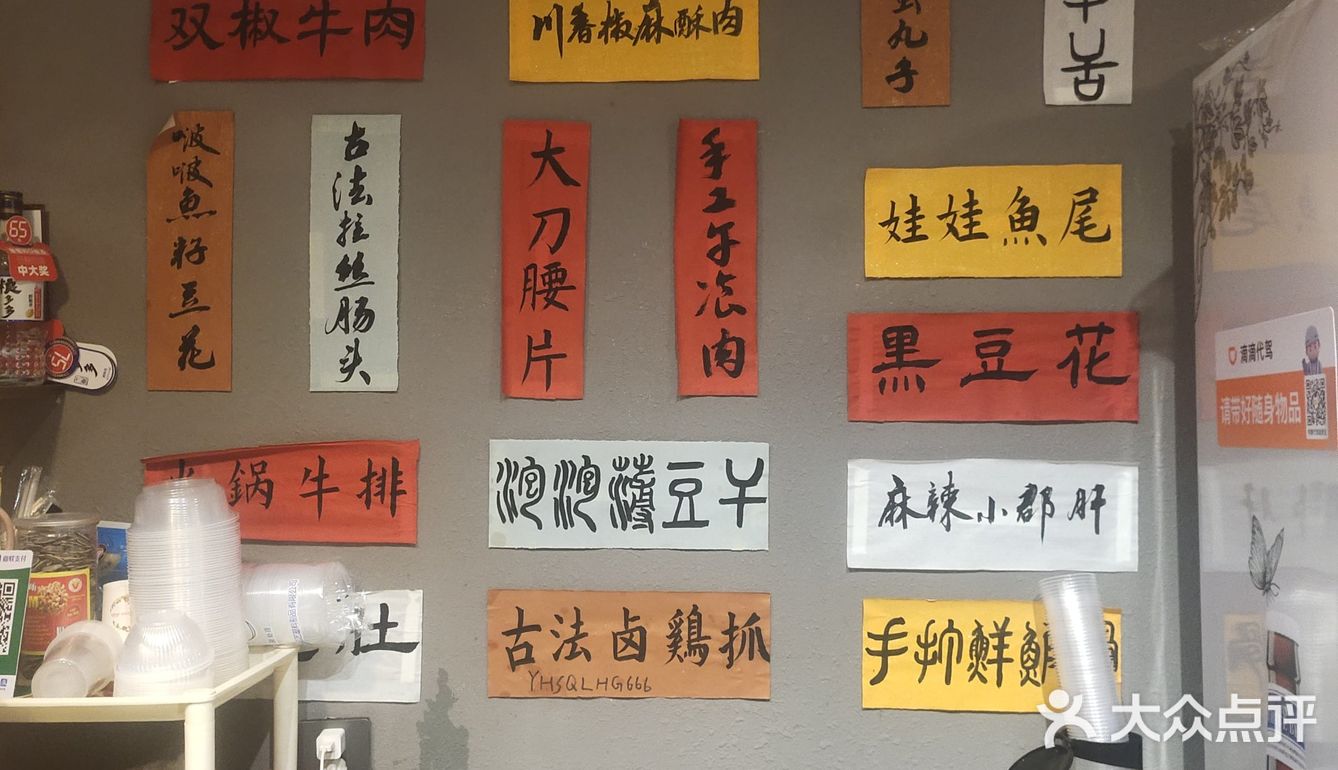 双椒牛肉
川香椒麻酥肉
丸子
牛舌
啵啵魚籽豆花
古法拉丝肠头
大刀腰片
手工午凔肉
娃娃魚尾
黑豆花
火鍋牛排
泡泡薄豆干
麻辣小郡肝
古法卤鷄抓
YHSQLHG666
手打鮮
65
中大奖
75
滴滴代驾
请带好随身物品
大众点评